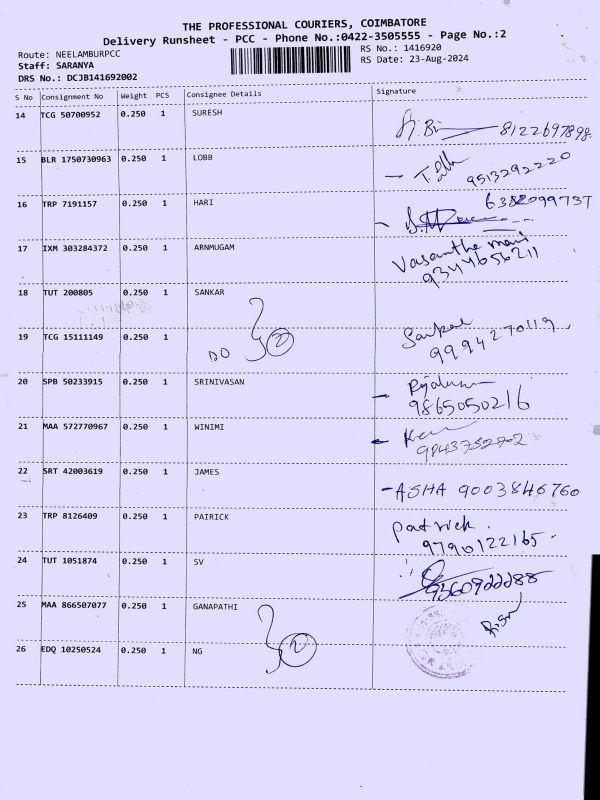 THE PROFESSIONAL COURIERS, COIMBATORE
Delivery Runsheet - PCC - Phone No.:0422-3505555 - Page No.:2
Route: NEELAMBURPCC
RS No.: 1416920
Staff: SARANYA
RS Date: 23-Aug-2024
DRS No.: DCJB141692002
S No Consignment No Weight PCS Consignee Details Signature
14 TCG 50700952 0.250 1 SURESH 8122697898
15 BLR 1750730963 0.250 1 LOBB 9513292220
16 TRP 7191157 0.250 1 HARI 6382099737
17 IXM 303284372 0.250 1 ARNMUGAM Vasantha mani
9344656211
18 TUT 200805 0.250 1 SANKAR
19 TCG 15111149 0.250 1 DO 2 Sankar
9994270119
20 SPB 50233915 0.250 1 SRINIVASAN
9865050216
21 MAA 572770967 0.250 1 WINIMI
22 SRT 42003619 0.250 1 JAMES - ASHA 9003846760
23 TRP 8126409 0.250 1 PAIRICK Patrick.
9790122165
24 TUT 1051874 0.250 1 SV
25 MAA 866507077 0.250 1 GANAPATHI
26 EDQ 10250524 0.250 1 NG 2